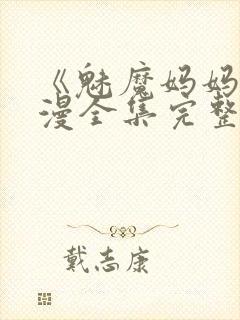 《魅魔妈妈
漫全集完整
戴志康